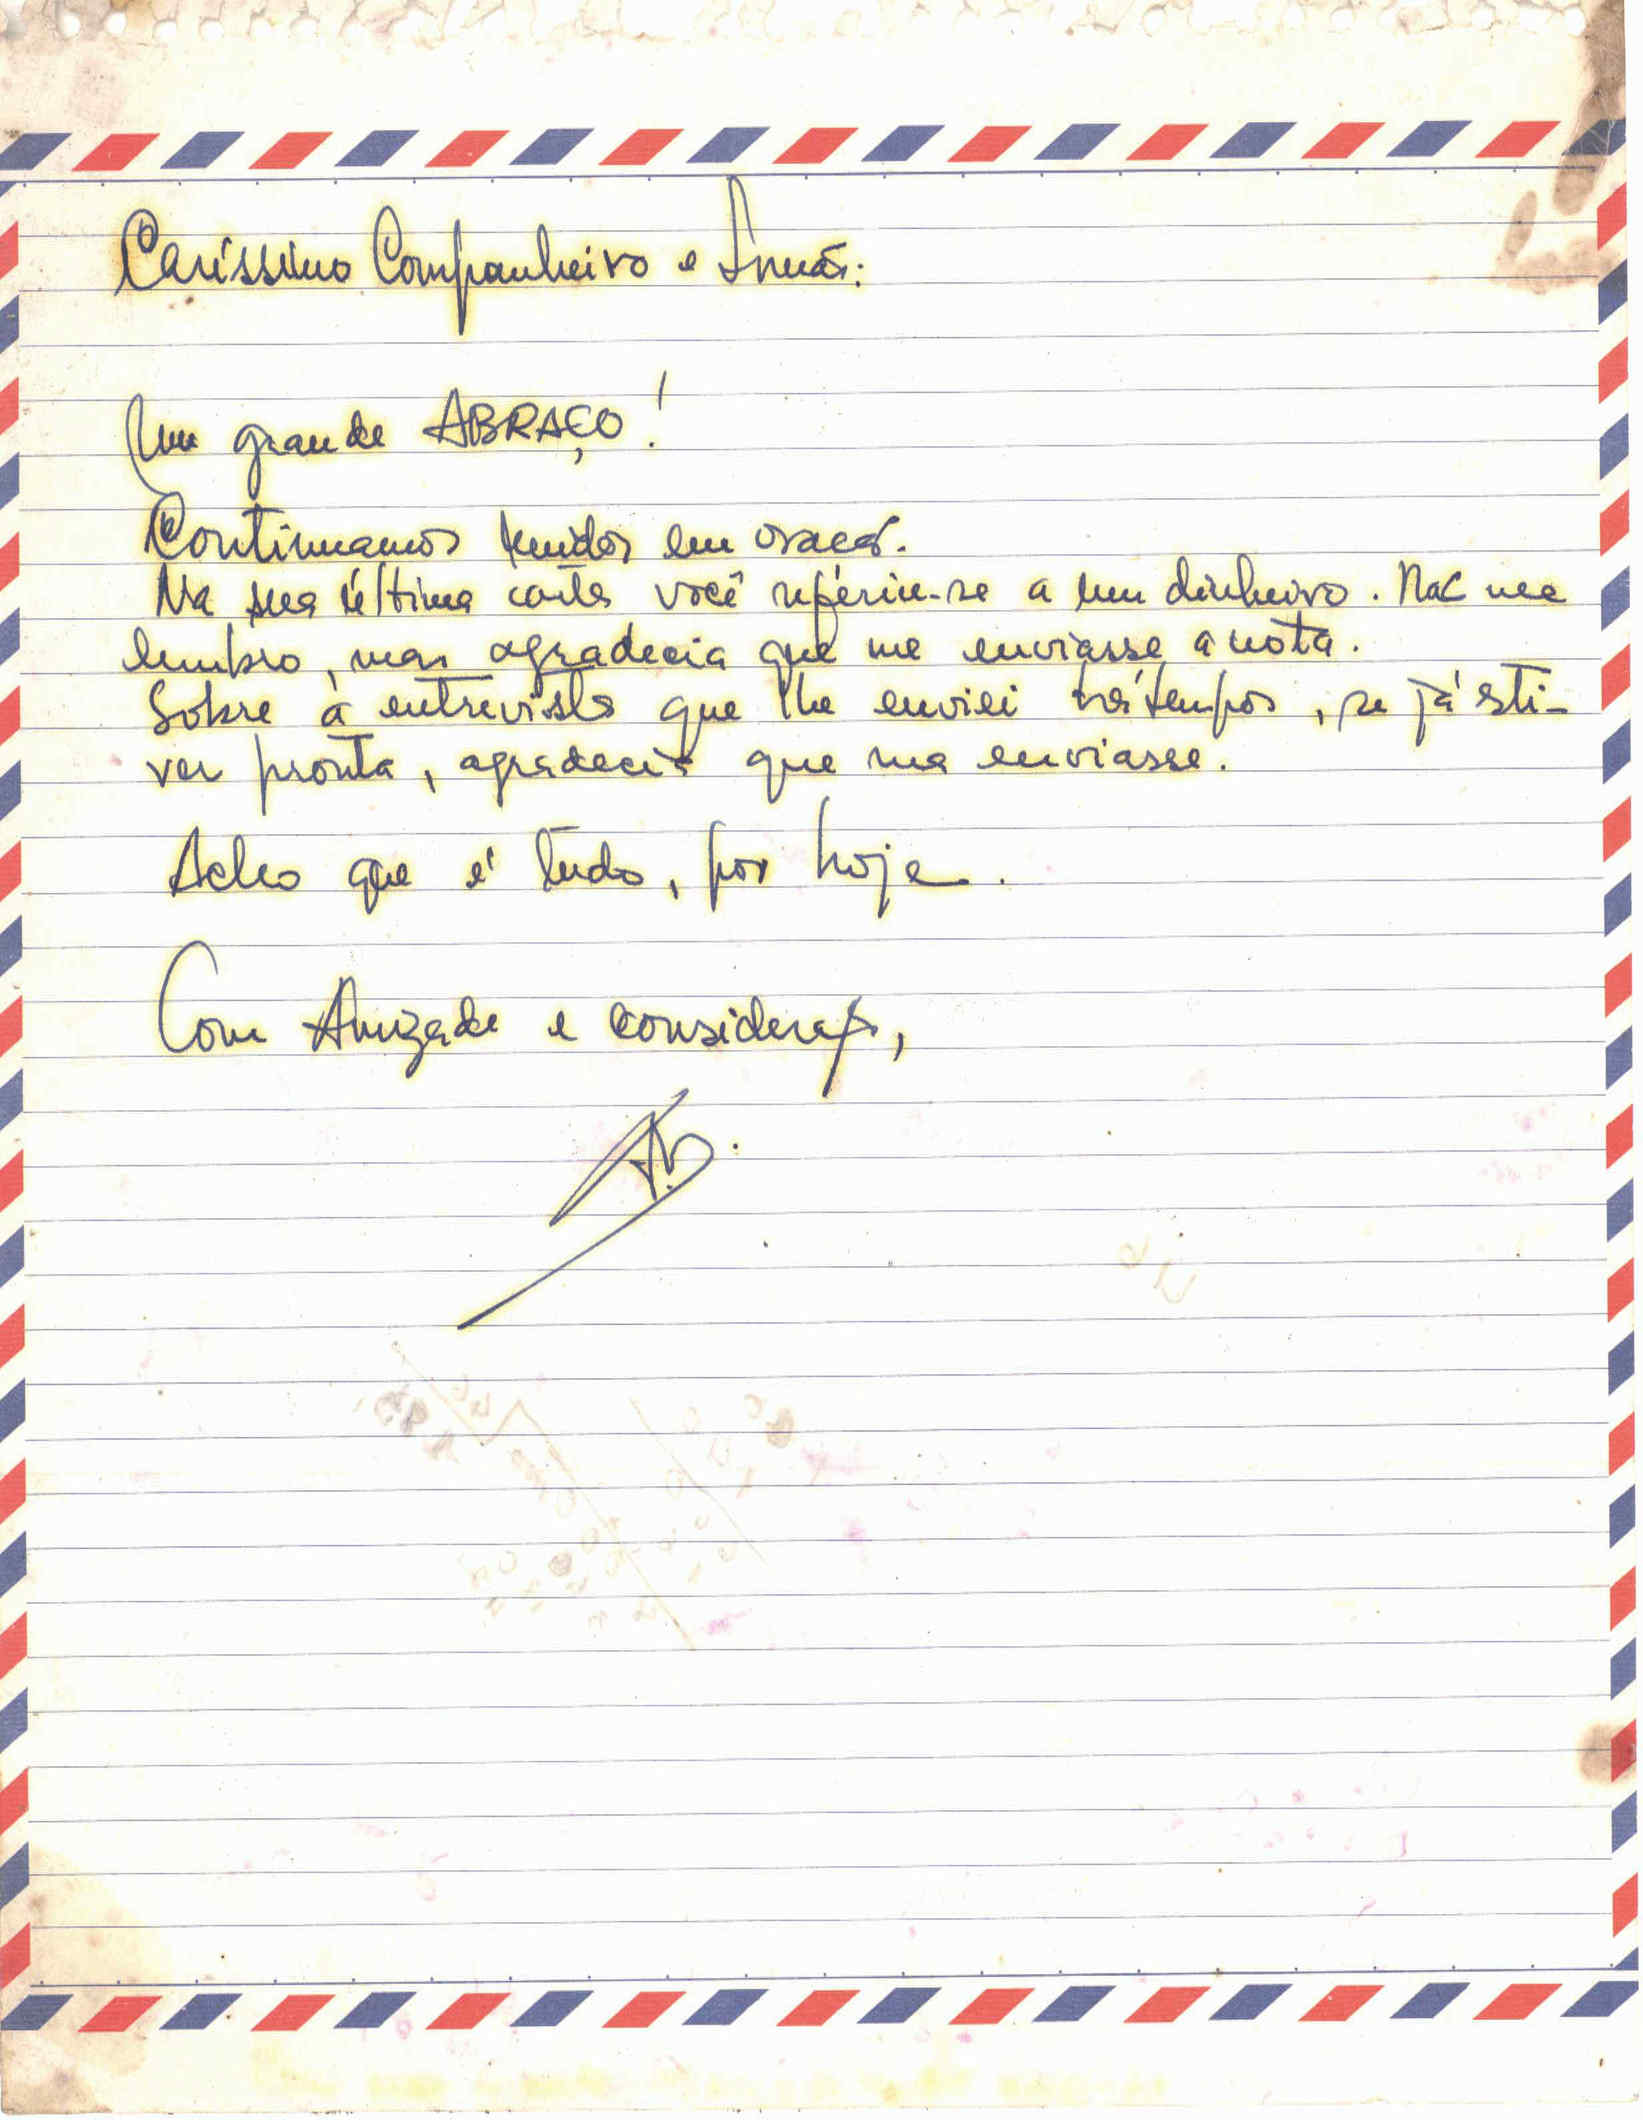 Caríssimo Companheiro e Irmão:
Um grande ABRAÇO!
Continuamos unidos em oração.
Na sua última carta você referiu-se a um dinheiro. Não me
lembro, mas agradecia que me enviasse a nota.
Sobre a entrevista que lhe enviei há tempos, se já esti-
ver pronta, agradecia que ma enviasse.
Acho que é tudo, por hoje.
Com Amizade e consideração,